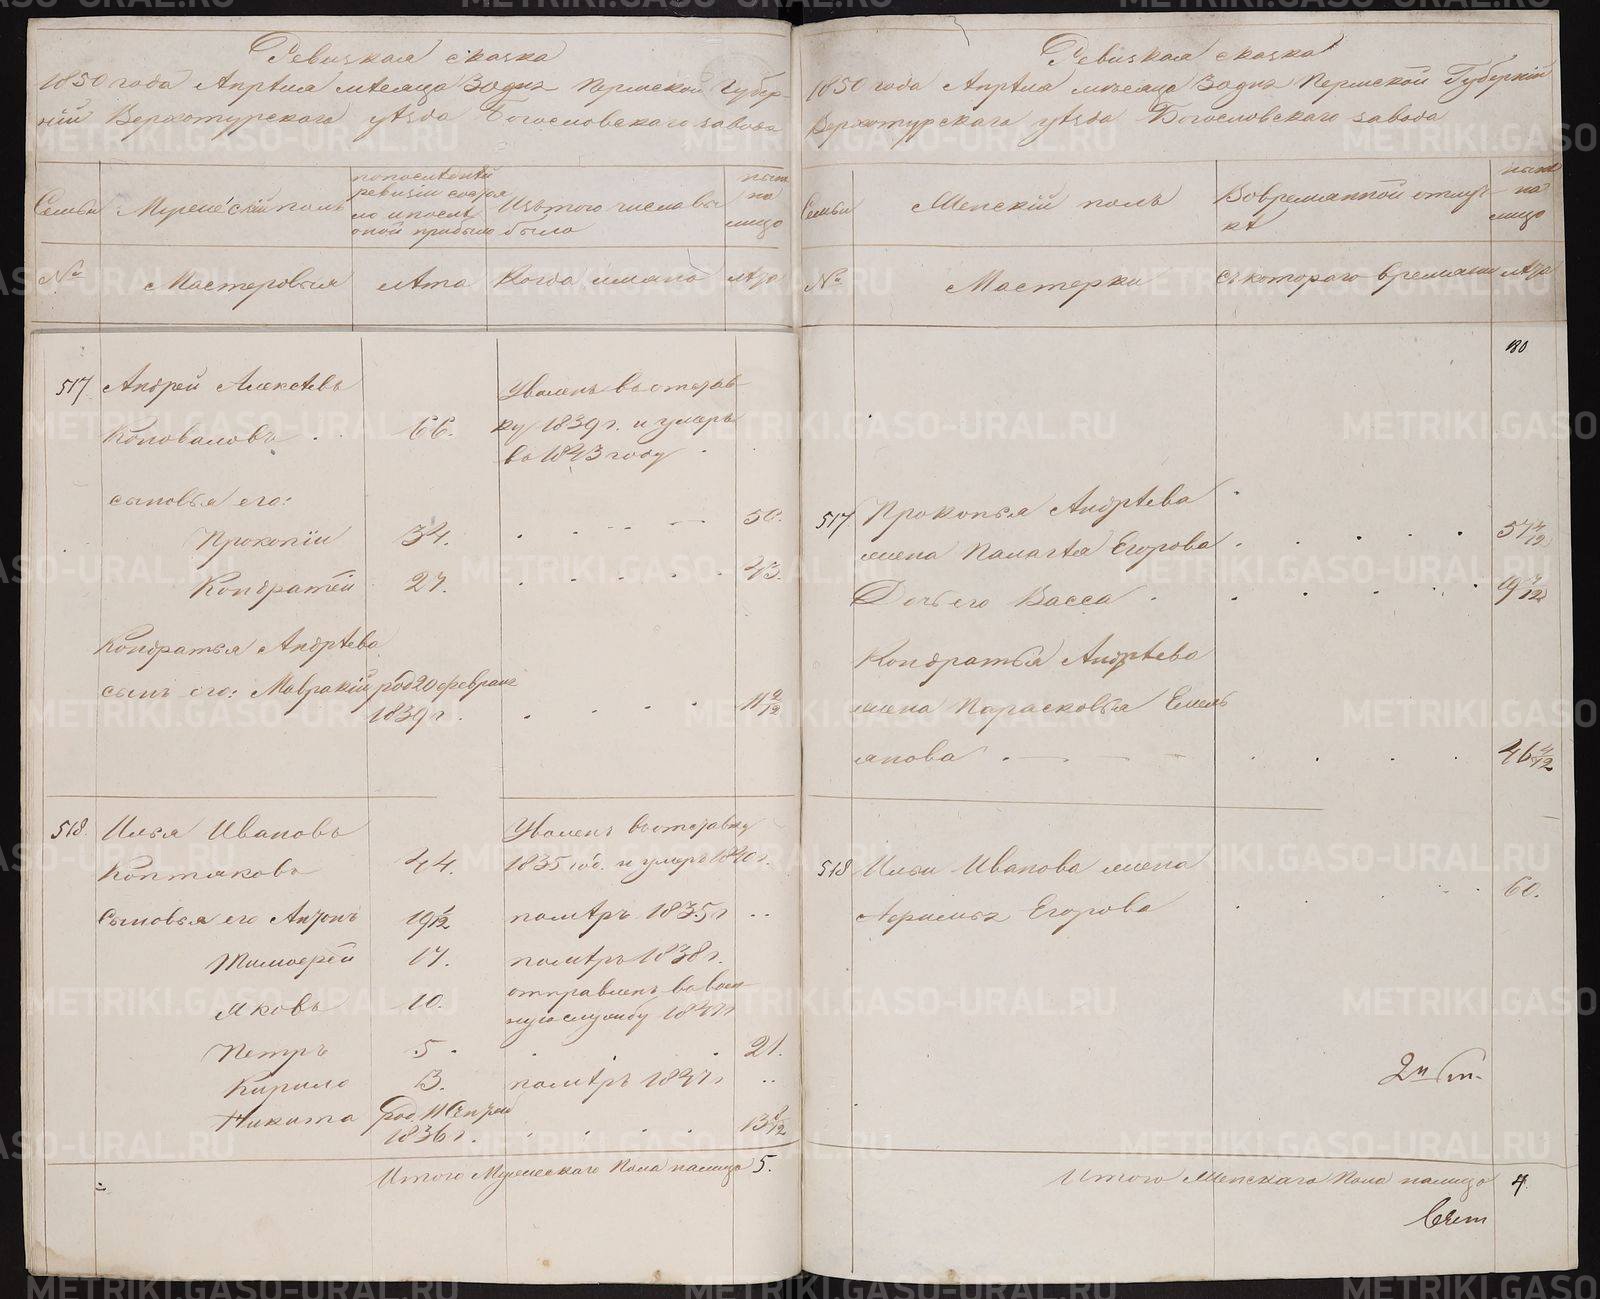 Ревизкая сказка
1850 года Апрѣля мѣсяца 30 дня Пермской Губер-
нии Верхотурскаго уѣзда Богословскаго завода
Семьи
Мужеческий полъ
по последней
ревизии состоя
ло и после
оной прибыло
Изъ того числа вы
было
ныне
на
лицо
№
Мастеровыя
лѣта
Когда имяно
лѣта
517
Андрей Алексѣевъ
Коноваловъ
66.
Уволенъ в отстав-
ку 1839 г. и умеръ
в 1843 году
сыновья его:
Прокопий
34.
50.
Кондратей
27.
43.
Кондратья Андрѣева
сынъ его: Мавракий
род 20 февраля
1839 г.
11 2/12
518.
Илья Ивановъ
Коптяковъ
44.
Уволенъ в отставку
1835 год. и умеръ 1840 г.
Сыновья его Антонъ
19 1/12
помѣръ 1835 г
Тимоѳей
17.
помѣръ 1838 г.
Яковъ
10.
отправленъ в воен-
ную службу 1847 г
Петръ
5.
21.
Кирило
3.
помѣръ 1847 г
Никита
1836 г.
13
Итого Мужескаго Пола налицо 5.
Ревизкая сказка
1850 года Апрѣля мѣсяца 30 дня Пермской Губернии
Верхотурскаго уѣзда Богословскаго завода
Семьи
Женский полъ
Во временной отлуч-
кѣ
ныне
на
лицо
№
Мастерки
съ котораго времяни
лѣта
180
517
Прокопья Андрѣева
жена Палагѣя Егорова
57 4/12
Дочь его Васса
19 4/12
Кондратья Андрѣева
жена Парасковья Емель
янова
46 4/12
518
Ильи Иванова жена
Егорова
60.
Итого Женскаго Пола налицо 4.